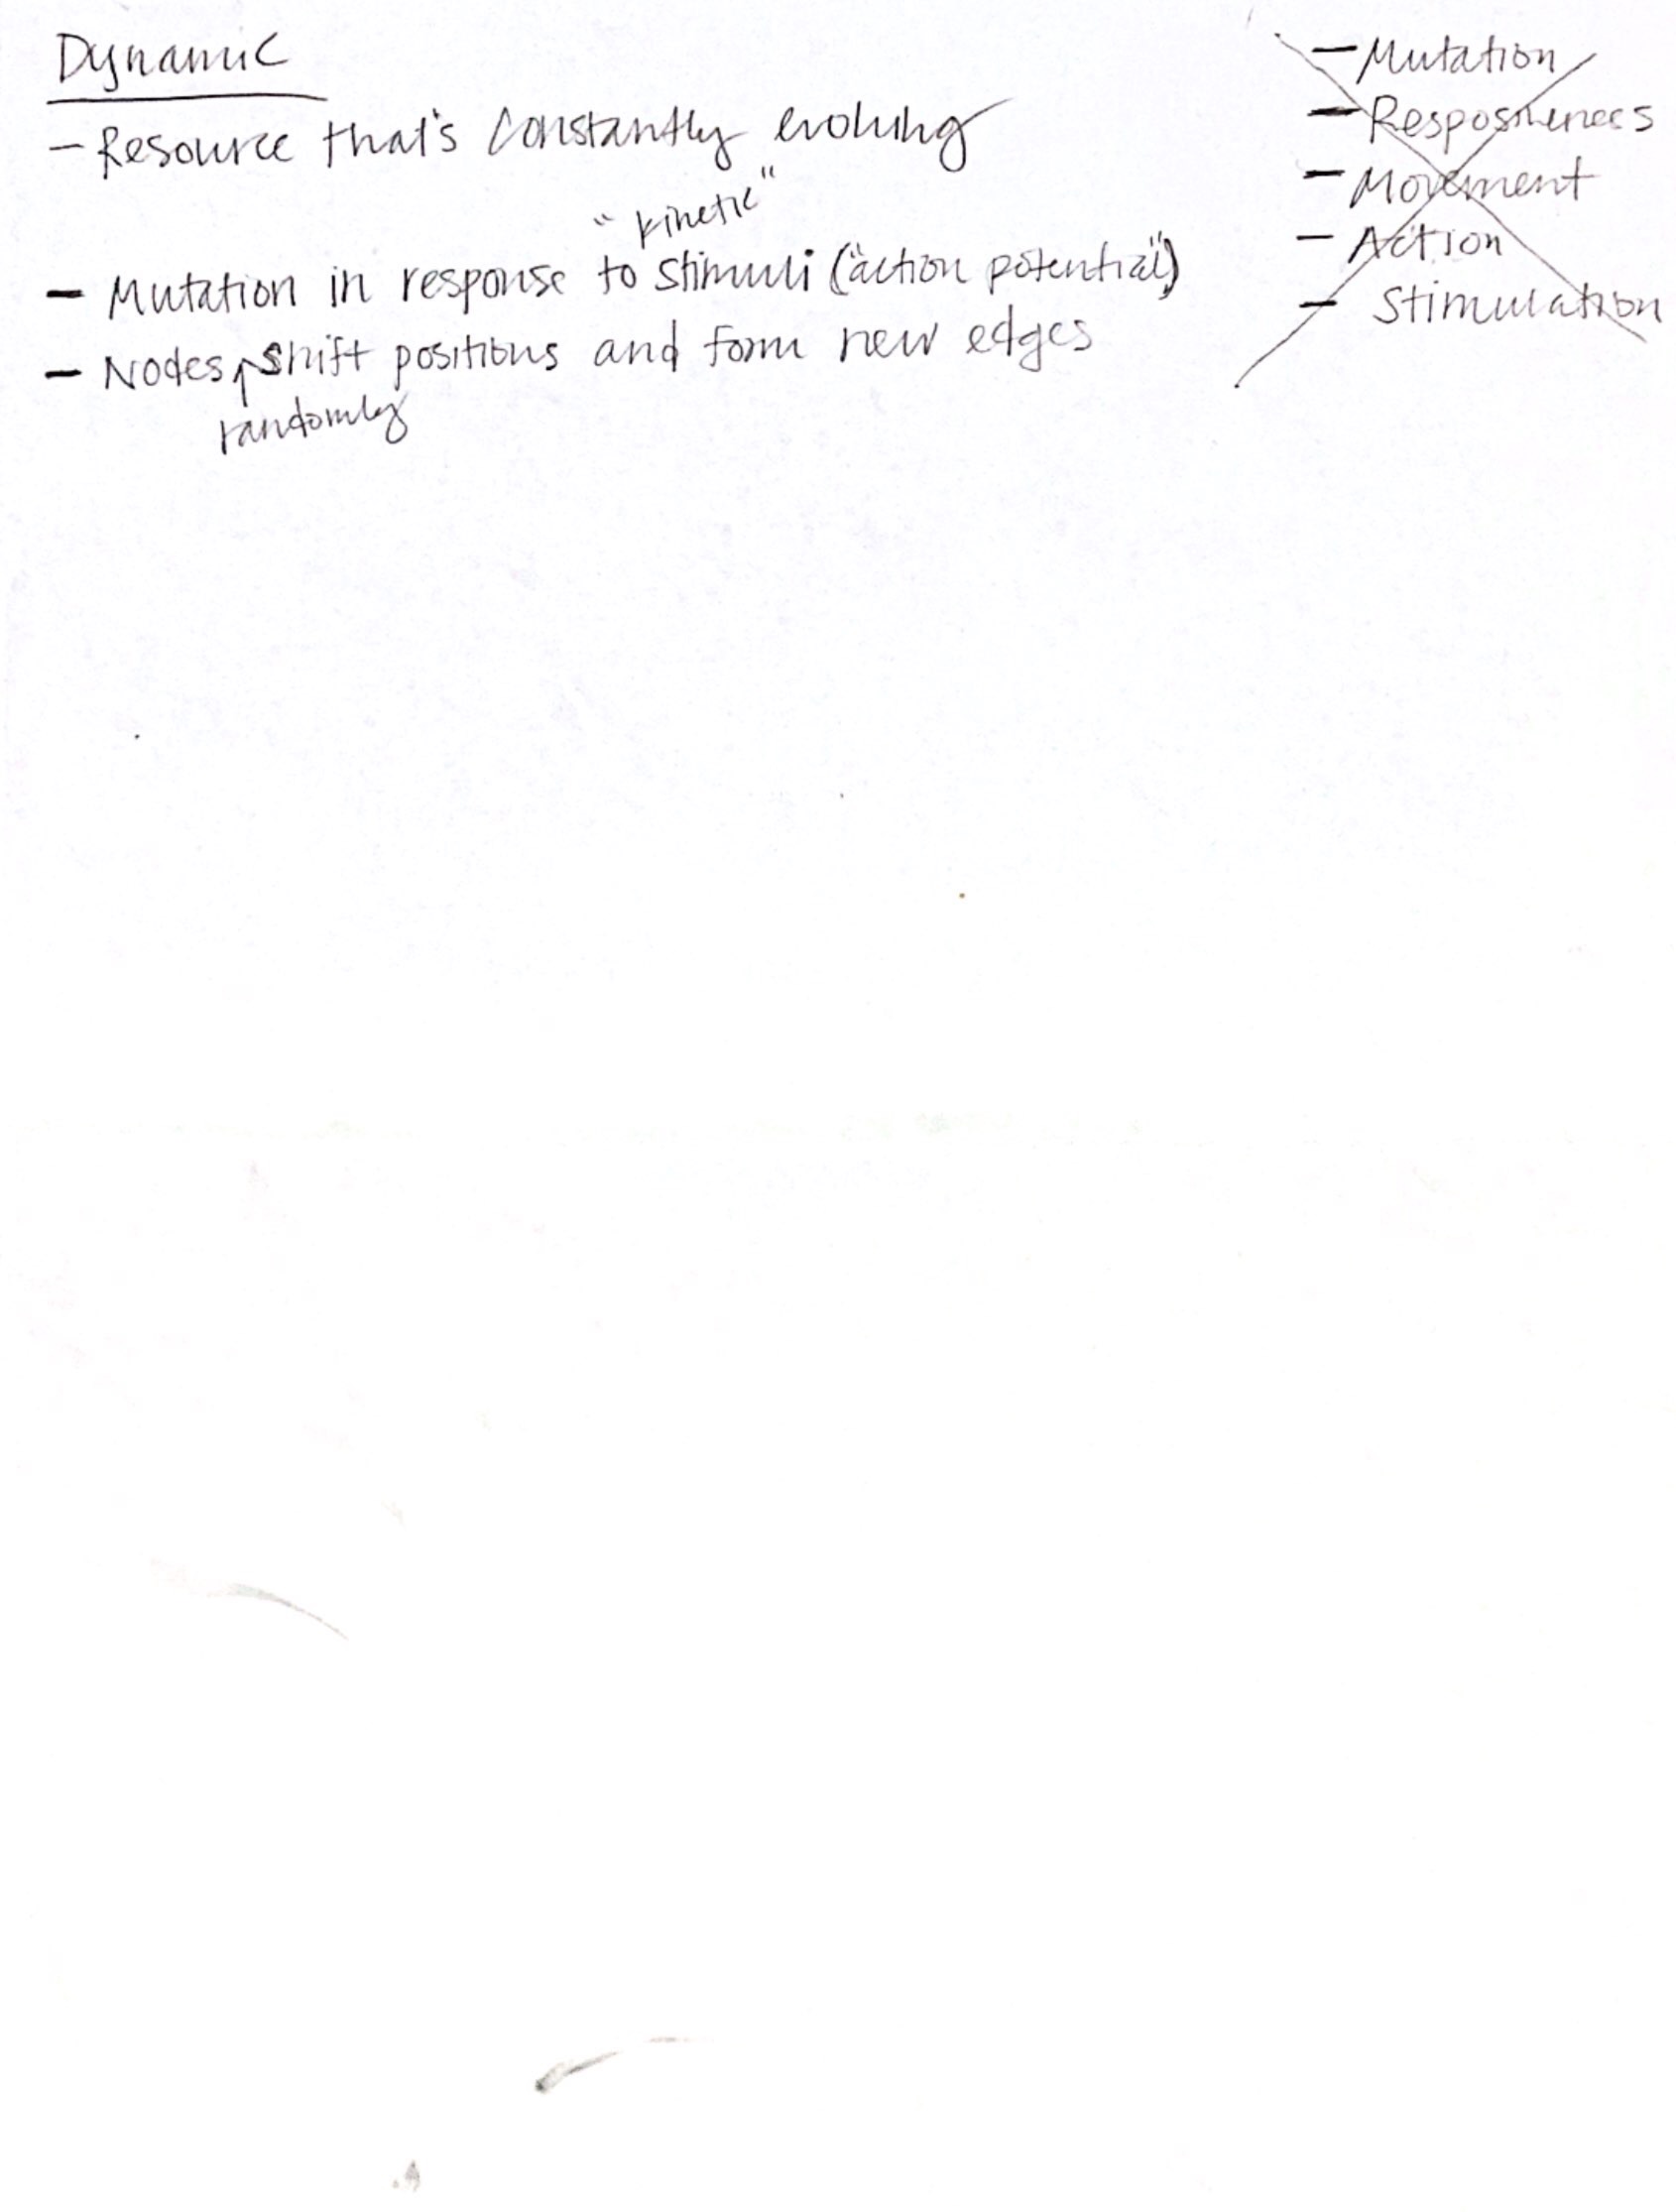 Dynamic
- Resource that's constantly evolving
"kinetic"
- Mutation in response to stimuli ("action potential")
- Nodes randomly shift positions and form new edges
- Mutation
-
- Movement
- Action
- Stimulation